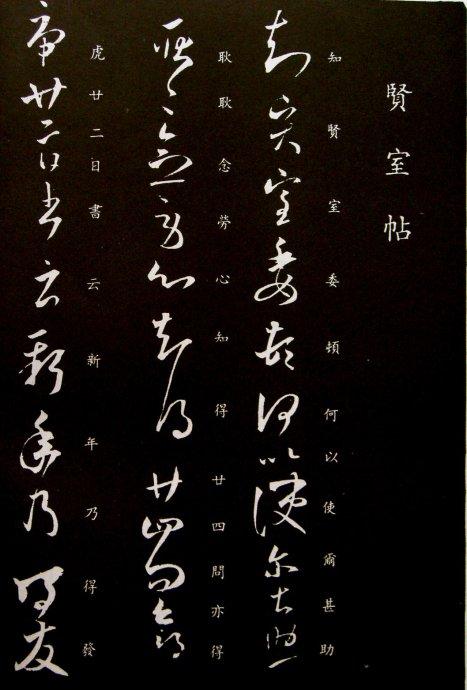 賢室帖
知賢室委頓何以使爾甚助
耿耿念勞心知得廿四問亦得
虎廿二日書云新年乃得發